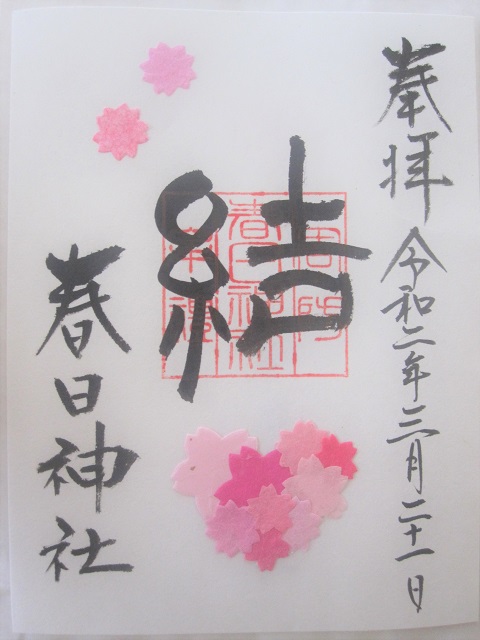 奉拝 令和二年三月二十一日
結
春日神社